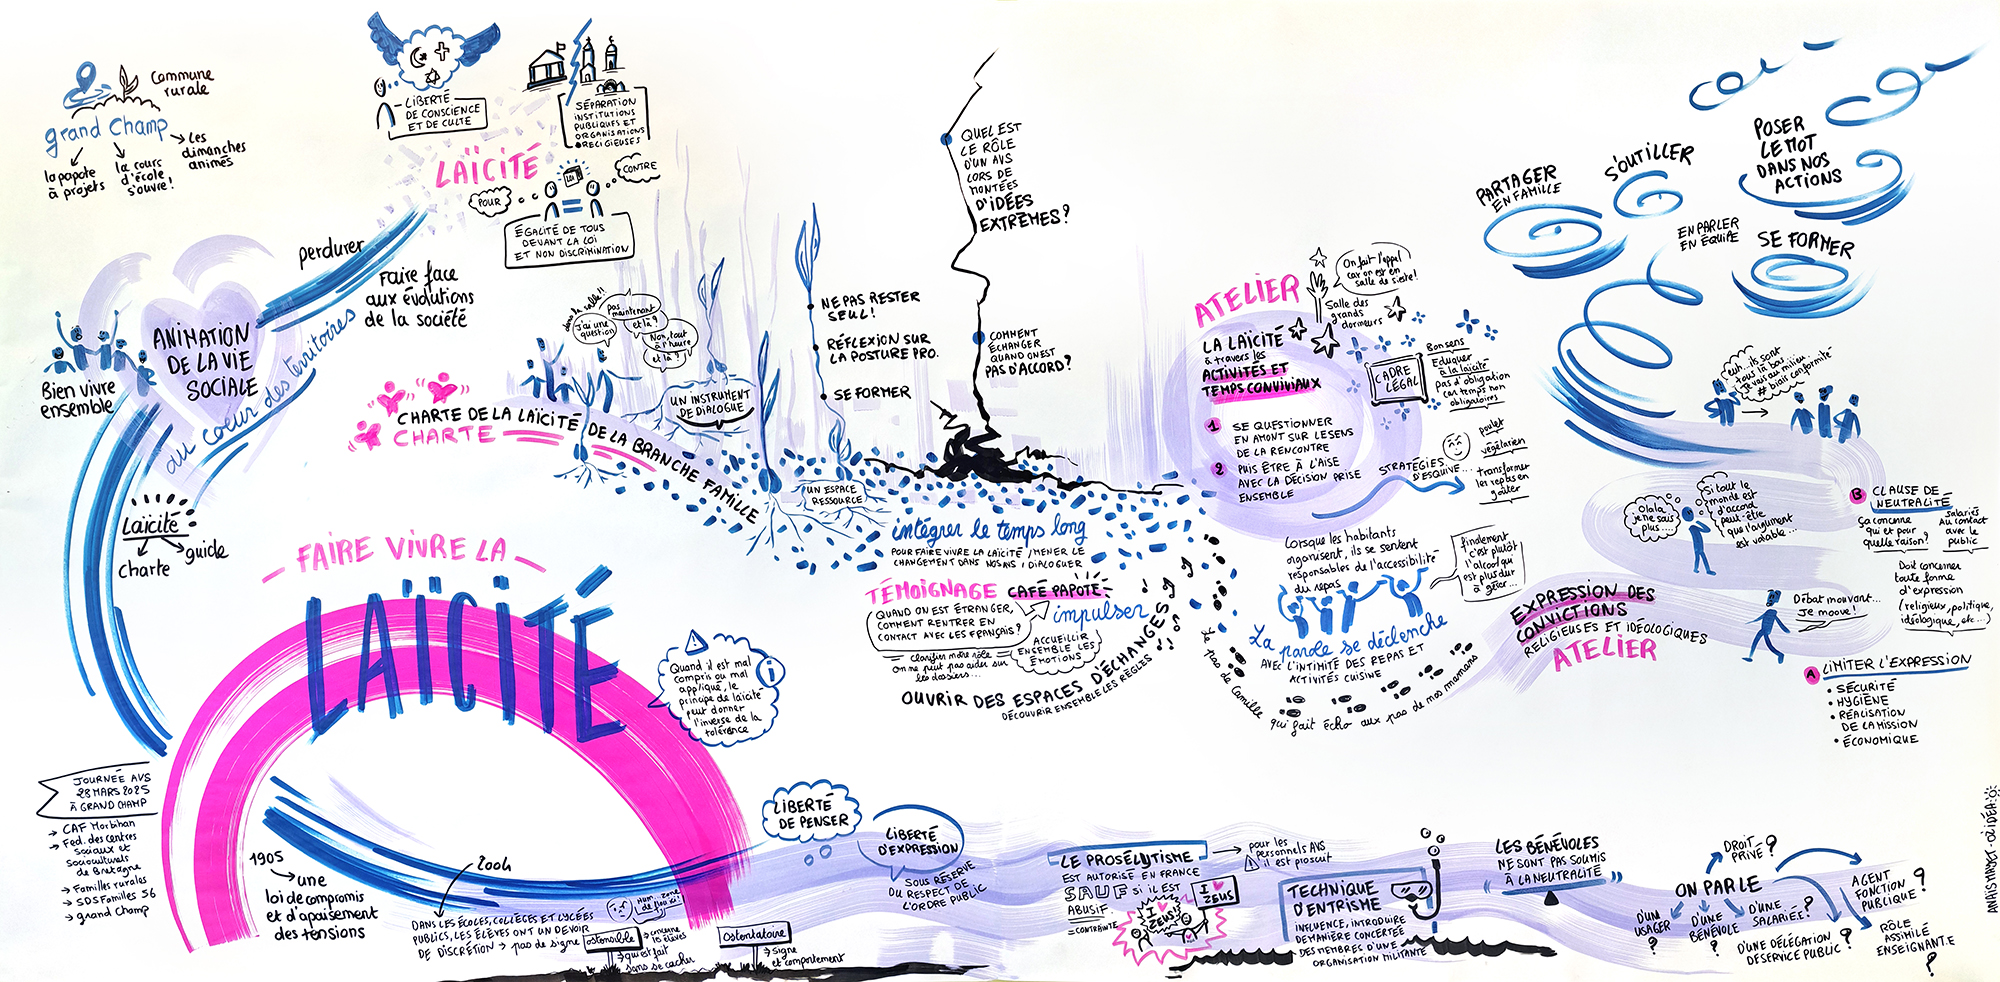 Commune
rurale
grand Champ
la papote
à projets
la cours
d'école
s'ouvre!
Les
dimanches
animés
LIBERTÉ
DE CONSCIENCE
ET DE CULTE
SÉPARATION
INSTITUTIONS
PUBLIQUES ET
ORGANISATIONS
RELIGIEUSES
LAÏCITÉ
POUR
LOI
CONTRE
ÉGALITÉ DE TOUS
DEVANT LA LOI
ET NON DISCRIMINATION
perdurer
Faire face
aux évolutions
de la société
ANIMATION
DE LA VIE
SOCIALE
au coeur des territoires
Bien vivre
ensemble
Laïcité
Charte
guide
CHARTE DE LA LAÏCITÉ DE LA BRANCHE FAMILLE
CHARTE
dans la salle!!
J'ai une
question
pas
maintenant
et là?
Non, tout
à l'heure
et là?
UN INSTRUMENT
DE DIALOGUE
NE PAS RESTER
SEUL!
RÉFLEXION SUR
LA POSTURE PRO.
SE FORMER
UN ESPACE
RESSOURCE
QUEL EST
LE RÔLE
D'UN AVS
LORS DE
MONTÉES
D'IDÉES
EXTRÊMES?
COMMENT
ÉCHANGER
QUAND ON EST
PAS D'ACCORD?
intégrer le temps long
POUR FAIRE VIVRE LA LAÏCITÉ / MENER LE
CHANGEMENT DANS NOS AVS / DIALOGUER
TÉMOIGNAGE CAFÉ PAPOTE
QUAND ON EST ÉTRANGER,
COMMENT RENTRER EN
CONTACT AVEC LES FRANÇAIS?
impulser
ACCUEILLIR
ENSEMBLE LES
ÉMOTIONS
= Clarifier notre rôle =
on ne peut pas aider sur
les dossiers...
OUVRIR DES ESPACES D'ÉCHANGES
DÉCOUVRIR ENSEMBLE LES RÈGLES
Le pas de Camille qui fait écho aux pas de nos mamans
ATELIER
LA LAÏCITÉ
à travers les
ACTIVITÉS ET
TEMPS CONVIVIAUX
On fait l'appel
car on est en
salle de sieste!
Salle des
grands
dormeurs
CADRE
LÉGAL
Bon sens
Eduquer
à la laïcité
pas d'obligation
car temps non
obligatoires
1 SE QUESTIONNER
EN AMONT SUR LE SENS
DE LA RENCONTRE
2 PUIS ÊTRE À L'AISE
AVEC LA DÉCISION PRISE
ENSEMBLE
STRATÉGIES
D'ESQUIVE...
poulet
végétarien
transformer
les repas en
goûter
Lorsque les habitants
organisent, ils se sentent
responsables de l'accessibilité
du repas
Finalement
c'est plutôt
l'alcool qui
est plus dur
à gérer...
La parole se déclenche
AVEC L'INTIMITÉ DES REPAS ET
ACTIVITÉS CUISINE
PARTAGER
EN FAMILLE
S'OUTILLER
POSER
LE MOT
DANS NOS
ACTIONS
EN PARLER
EN ÉQUIPE
SE FORMER
euh...ils sont
tous là bas
je vais au milieu
# biais conformité
Olala
je ne sais
plus....
Si tout le
monde est
d'accord
peut-être
que l'argument
est valable...
B CLAUSE DE
NEUTRALITÉ
Ça concerne
qui et pour
quelle raison?
salariés
Au contact
avec le
public
Doit concerner
toute forme
d'expression
(religieux, politique,
idéologique, etc...)
EXPRESSION DES
CONVICTIONS
RELIGIEUSES ET IDÉOLOGIQUES
ATELIER
Débat mouvant...
Je moove!
A LIMITER L'EXPRESSION
• SÉCURITÉ
• HYGIÈNE
• RÉALISATION
DE LA MISSION
• ÉCONOMIQUE
FAIRE VIVRE LA
LAÏCITÉ
Quand il est mal
compris ou mal
appliqué, le
principe de laïcité
peut donner
l'inverse de la
tolérance
JOURNÉE AVS
28 MARS 2025
À GRAND CHAMP
→ CAF Morbihan
→ Fed. des centres
sociaux et
socioculturels
de Bretagne
→ Familles rurales
→ SDSFamilles 56
→ grand Champ
1905
une
loi de compromis
et d'apaisement
des tensions
2004
DANS LES ÉCOLES, COLLÈGES ET LYCÉES
PUBLICS, LES ÉLÈVES ONT UN DEVOIR
DE DISCRÉTION → pas de signe
Hum... zone
de flou ici!
ostensible
→ concerne
les élèves
→ qui est fait
sans se cacher
ostentatoire
→ signe
et comportement
LIBERTÉ
DE PENSER
LIBERTÉ
D'EXPRESSION
SOUS RÉSERVE
DU RESPECT DE
L'ORDRE PUBLIC
LE PROSÉLYTISME
EST AUTORISÉ EN FRANCE
SAUF SI IL EST
ABUSIF
= CONTRAINTE
pour les
personnels AVS
il est proscrit
I ♥
ZEUS
I ♥
ZEUS!
TECHNIQUE
D'ENTRISME
INFLUENCE, INTRODUIRE
DE MANIÈRE CONCERTÉE
DES MEMBRES D'UNE
ORGANISATION MILITANTE
LES BÉNÉVOLES
NE SONT PAS SOUMIS
À LA NEUTRALITÉ
DROIT
PRIVÉ?
ON PARLE
D'UN
USAGER
?
D'UNE
BÉNÉVOLE
?
D'UNE
SALARIÉE?
D'UNE DÉLÉGATION
DE SERVICE PUBLIC?
AGENT
FONCTION
PUBLIQUE?
RÔLE
ASSIMILÉ
ENSEIGNANT.E
?